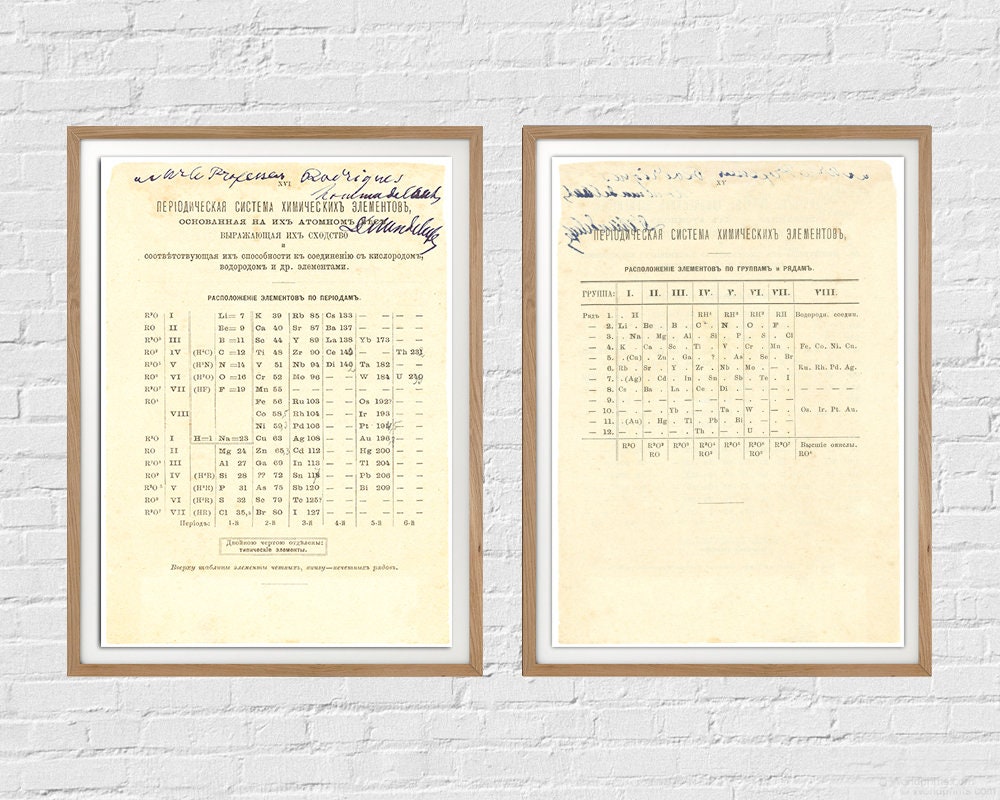 Professeur Rodrigues
XVI
ПЕРІОДИЧЕСКАЯ СИСТЕМА ХИМИЧЕСКИХЪ ЭЛЕМЕНТОВЪ,
ОСНОВАННАЯ НА ИХЪ АТОМНОМЪ
ВЫРАЖАЮЩАЯ ИХЪ СХОДСТВО
и
соотвѣтствующая ихъ способности къ соединенію съ кислородомъ,
водородомъ и др. элементами.
РАСПОЛОЖЕНІЕ ЭЛЕМЕНТОВЪ ПО ПЕРІОДАМЪ.
R²O I Li= 7 K 39 Rb 85 Cs 133 — —
RO II Be= 9 Ca 40 Sr 87 Ba 137 — —
R²O³ III B =11 Sc 44 Y 89 La 138 Yb 173 —
RO² IV (H⁴C) C =12 Ti 48 Zr 90 Ce 140 — Th 231
R²O⁵ V (H³N) N =14 V 51 Nb 94 Di 140 Ta 182 —
RO³ VI (H²O) O =16 Cr 52 Mo 96 — W 184 U 240
R²O⁷ VII (HF) F =19 Mn 55 — — — —
RO⁴ VIII Fe 56 Ru 103 — Os 192? —
Co 58,5 Rh 104 — Ir 193 —
Ni 59 Pd 106 — Pt 194 —
R²O I H=1 Na=23 Cu 63 Ag 108 — Au 196 —
RO II Mg 24 Zn 65 Cd 112 — Hg 200 —
R²O³ III Al 27 Ga 69 In 113 — Tl 204 —
RO² IV (H⁴R) Si 28 ?? 72 Sn 118 — Pb 206 —
R²O⁵ V (H³R) P 31 As 75 Sb 120 — Bi 209 —
RO³ VI (H²R) S 32 Se 79 Te 125? — — —
R²O⁷ VII (HR) Cl 35,5 Br 80 I 127 — — —
Періодъ: 1-й 2-й 3-й 4-й 5-й 6-й
Двойною чертою отдѣлены:
типическіе элементы.
Вверху таблицы элементы четныхъ, внизу—нечетныхъ рядовъ.
XV
ПЕРІОДИЧЕСКАЯ СИСТЕМА ХИМИЧЕСКИХЪ ЭЛЕМЕНТОВЪ,
РАСПОЛОЖЕНІЕ ЭЛЕМЕНТОВЪ ПО ГРУППАМЪ и РЯДАМЪ.
ГРУППА: I. II. III. IV. V. VI. VII. VIII.
Рядъ 1. . H RH⁴ RH³ RH² RH Водородн. соедин.
— 2. Li . Be . B . C . N . O . F .
— 3. . Na . Mg . Al . Si . P . S . Cl
— 4. K . Ca . Sc . Ti . V . Cr . Mn . Fe. Co. Ni. Cu.
— 5. . (Cu) . Zn . Ga . ? . As . Se . Br
— 6. Rb . Sr . Y . Zr . Nb . Mo . — . Ru. Rh. Pd. Ag.
— 7. . (Ag) . Cd . In . Sn . Sb . Te . I
— 8. Cs . Ba . La . Ce . Di . — . — .
— 9. . — . — . — . — . — . — . —
— 10. — . — . Yb . — . Ta . W . — . Os. Ir. Pt. Au.
— 11. . (Au) . Hg . Tl . Pb . Bi . — . —
— 12. — . — . — . Th . — . U . — .
R²O R²O² R²O³ R²O⁴ R²O⁵ R²O⁶ R²O⁷ Высшіе окислы.
RO RO² RO³ RO⁴